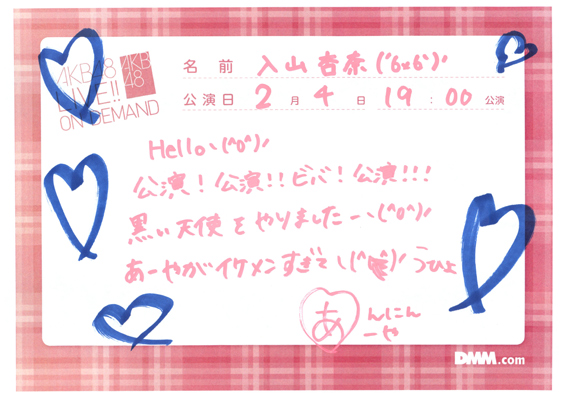 AKB48
LIVE!!
ON DEMAND
AKB
48
名 前 入山杏奈(´6x6`)ノ
公演日 2 月 4 日 19 : 00 公演
Helloヽ(^o^)ノ
公演!公演!!ビバ!公演!!!
黒い天使をやりましたーヽ(^o^)ノ
あーやがイケメンすぎてヽ( )ノうひょ
あ んにん
ーや
DMM.com